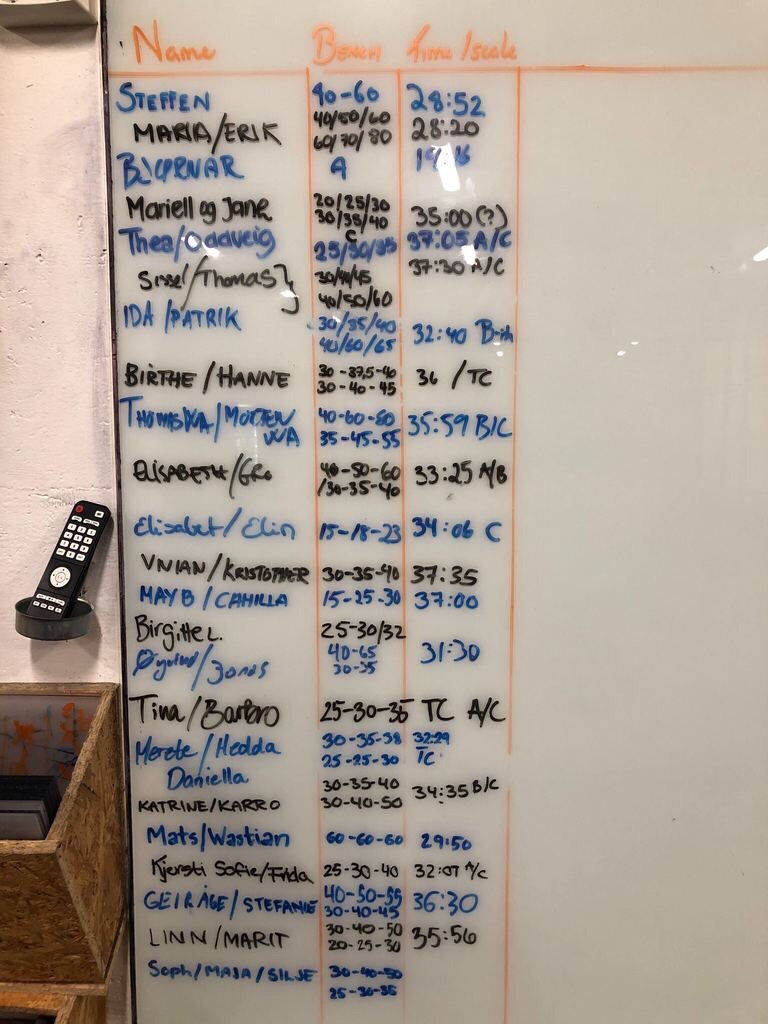 Name Bench Time/scale
STEFFEN 40-60 28:52
MARIA/ERIK 40/50/60 28:20
60/70/80
A
Mariell og Jane 20/25/30 35:00(?)
30/35/40
C
Thea/Oddveig 25/30/35 37:05 A/C
Sissel/Thomas} 30/40/45 37:30 A/C
40/50/60
IDA/PATRIK 30/35/40 32:40
40/60/65
BIRTHE/HANNE 30-37,5-40 36 /TC
30-40-45
40-60-80 35:59 B/C
35-45-55
ELISABETH/Gro 40-50-60 33:25 A/B
/30-35-40
Elisabet/Elin 15-18-23 34:06 C
VIVIAN/KRISTOFFER 30-35-40 37:35
MAY B/CAMILLA 15-25-30 37:00
Birgitte L. 25-30/32
Øyvind/Jonas 40-65 31:30
30-35
Tina/Barbro 25-30-35 TC A/C
Merete/Hedda 30-35-38 32:29
25-25-30 TC
Daniella
30-35-40 34:35 B/C
KATRINE/KARRO 30-40-50
Mats/Wastian 60-60-60 29:50
Kjersti Sofie/Frida 25-30-40 32:07 A/C
GEIRÅGE/STEFANIE 40-50-55 36:30
30-40-45
LINN/MARIT 30-40-50 35:56
20-25-30
Soph/MAJA/SILJE 30-40-50
25-30-35